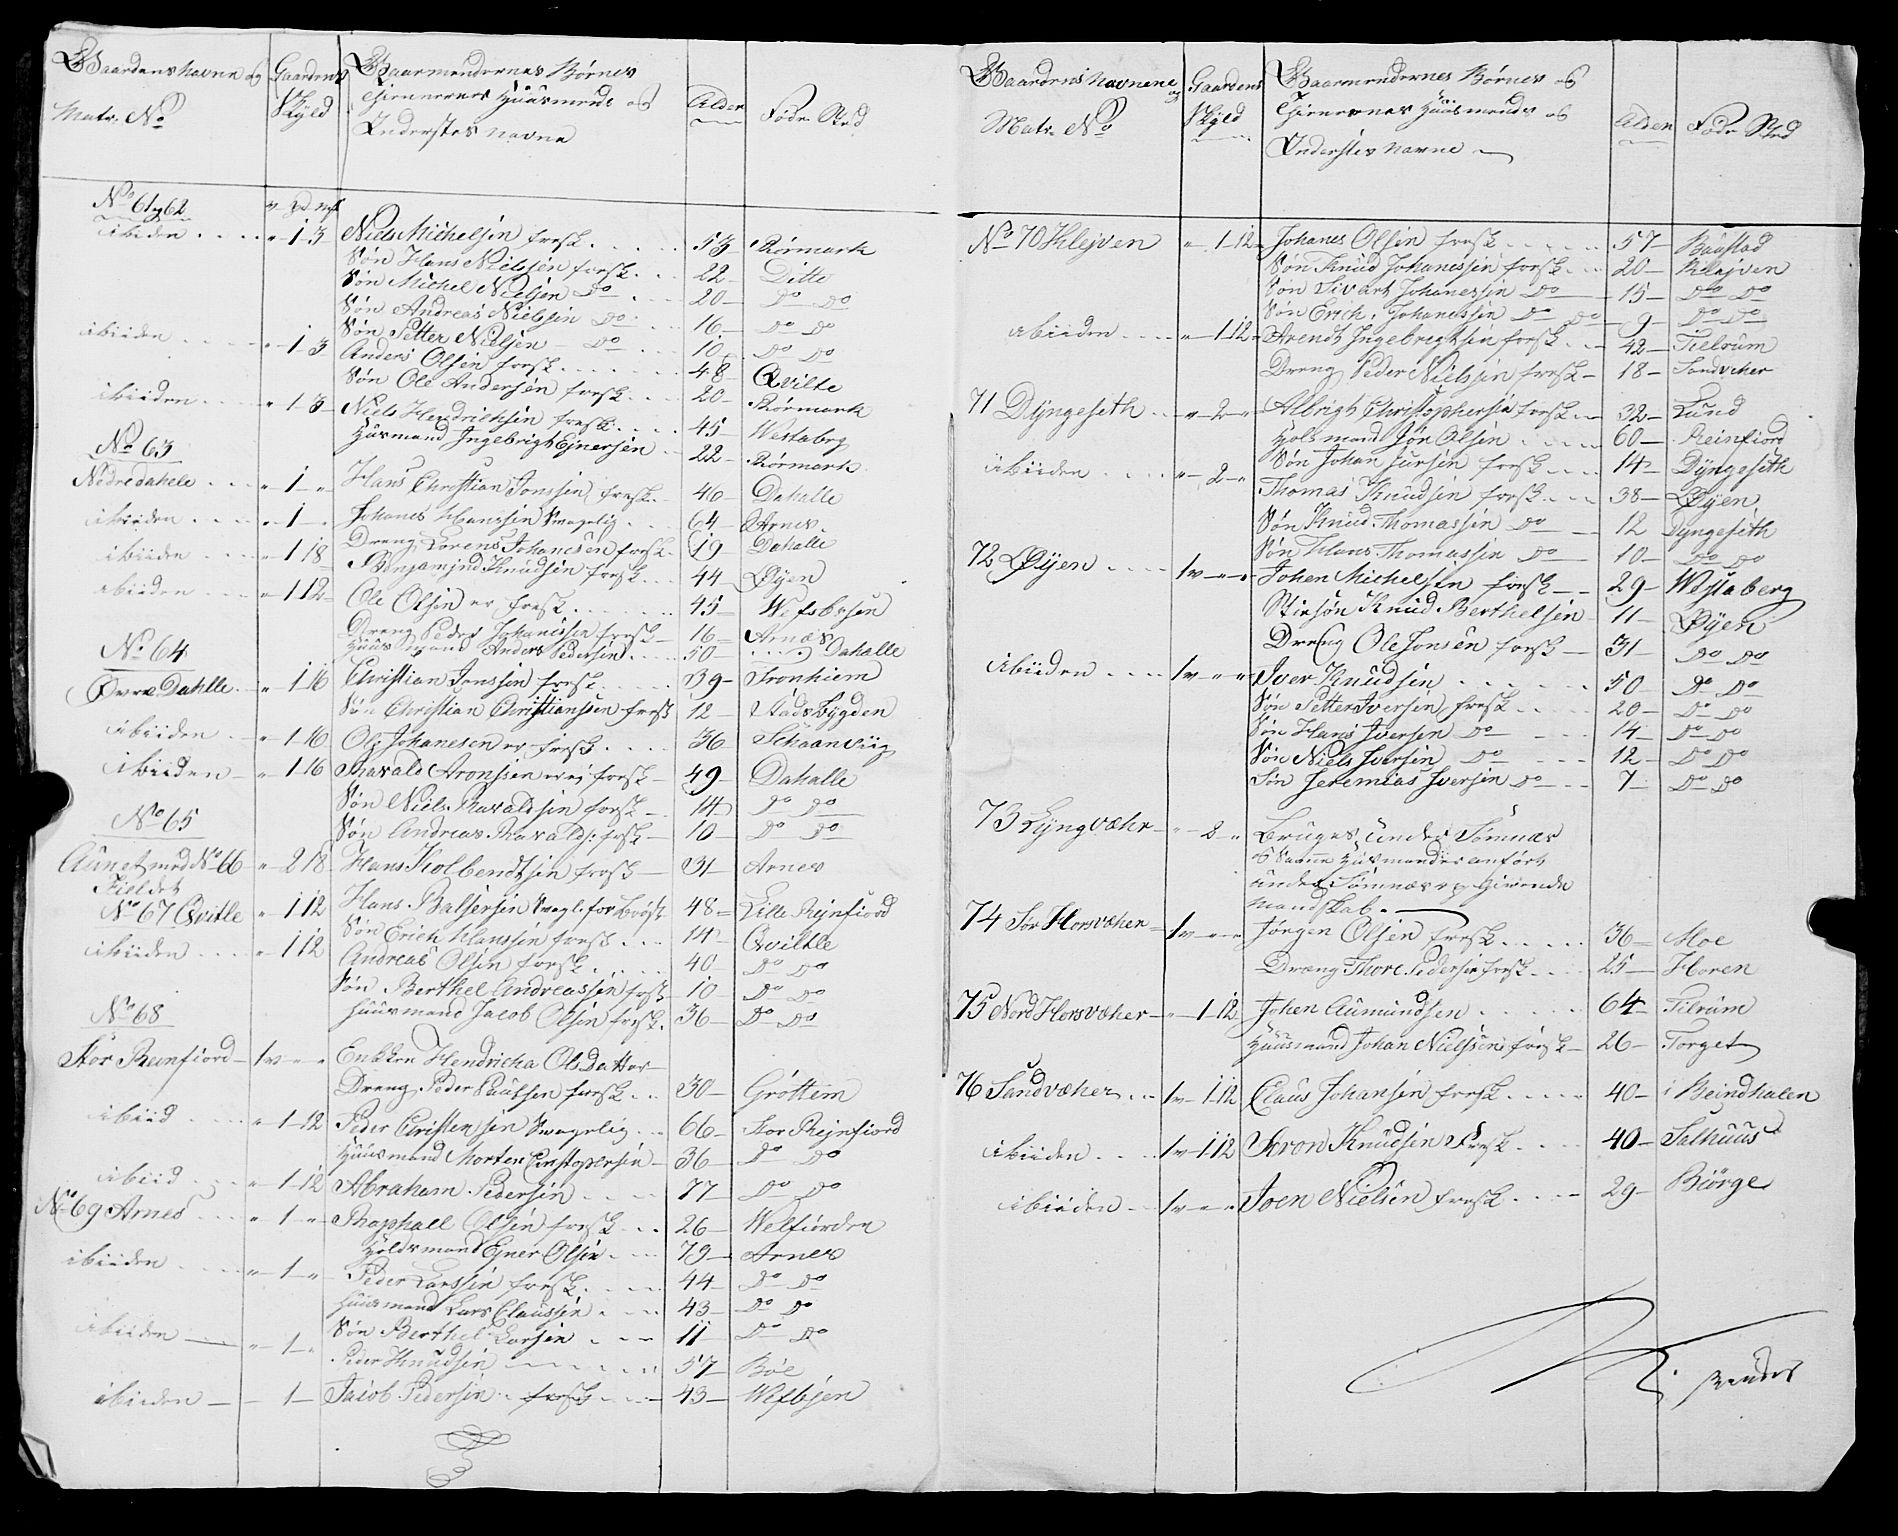 Gaardens navne og
Matr. No
Gaardens
Skyld
Gaarmendernes Børnes
Tienernes Huusmends og
Inderstes navne
Alder
Føde Sted
No 61 og 62
v pd mk
ibiden .... " 1 3 Niels Michelsen fresk ..... 53 Rørmark
Søn Hans Nielsen forsk ... 22 Ditto
Søn Michel Nielsen Do ... 20 Do Do
Søn Andreas Nielsen Do ... 16 Do Do
Søn Petter Nielsen Do ... 10 Do Do
ibiiden .... " 1 3 Anders Olsen fresk ...... 48 Qvilte
Søn Ole Andersen fresk ... 20 Rørmark
ibiiden .... " 1 3 Niels Hendrichsen fresk .... 45 Westaberg
Huusmand Ingebrigt Ejnersen .. 22 Rørmark
No 63
Nedre dahele ... " 1 " Hans Christian Jonssen fresk .. 46 Dahalle
ibiiden .... " 1 " Johanes Hanssen Swagelig ... 64 Arnes
Dreng Lorens Johanesen fresk. 19 Dahalle
ibiiden .... " 1 18 Benjamind Knudsen forsk ... 44 Øyen
ibiiden .... " 1 12 Ole Olsen er fresk ....... 45 Wefsbysen
Dreng Peder Johanissen fresk 16 Arnæs
Huusmand Anders Pedersen .... 50 ... Dahalle
No 64
Øvre Dahlle .. " 1 16 Christian Jonssen fresk ..... 39 Tronhiem
Søn Christian Christianssen fresk 12 Stadsbygden
ibiiden .. " 1 16 Ole Johanesen er fresk .... 36 Schaanviig
ibiiden " 1 16 Ravald Aronssen er ei forsk 49 Dahalle
Søn Niels Ravaldsen forsk 14 Do Do
No 65
Søn Andreas Ravalds: forsk 10 Do Do
Aunet med No 66 " 2 18 Hans Kolbendtsen fresk 31 Arnes
Fieldet
No 67 Qvitle " 1 12 Hans Balsersen Swagl. for bröst 48 Lille Reinfiord
Søn Erich Hanssen forsk .... 14 Qviltle
ibiiden .... " 1 12 Andreas Olsen forsk ..... 40 Do Do
Søn Berthel Andreassen forsk 10 Do Do
Huusmand Jacob Olsen fresk. 36 Do Do
No 68
Stor Reenfiord 1 v " " Enkken Hendricha Olsdatter
Dreng Peder Paulsen forsk .. 30 Gröttem
ibiid ..... " 1 12 Peder Christensen Swagelig ... 66 Stor Rejnfiord
Huusmand Morten Christopersen 36 Do Do
ibiid .... " 1 12 Abraham Pedersen .... 77 Do Do
No 69 Arnes .... " 1 " Raphael Olsen fresk .... 26 Welfiorden
Holdsmand Ejner Olsen .... 79 Arnes
ibiiden .... " 1 " Peder Larssen forsk ..... 44 Do Do
Huusmand Lars Claussen .... 43 Do Do
Søn Berthel Larsen .... 11 Do Do
ibiiden " 1 " Peder Knudsen ...... 57 Böe
ibiiden 1 Jacob Pedersen forsk .... 43 Wefbsen
Gaardens Navnene
og
Matr. No
Gaardens
Skyld
Gaarmendernes Børnes og
Tienernes Huusmends og
Inderstes navne
Alder
Føde Sted
No 70 Klejven " 1 12 Johanes Olsen fresk ..... 57 Baustad
Søn Knud Johanessen forsk ... 20 Klejven
Søn Sivart Johanessen Do 15 Do Do
Søn Erich Johanessen Do Do 9 Do Do
ibiiden .... " 1 12 Arendt Ingebregtsen forsk ... 42 Tielrum
Dreng Peder Nielssen fresk 18 Sandveher
71 Dyngeseth .. " 2 " Albrigt Christophersen forsk .. 32 Lund
Holsmand Jön Olsen ..... 60 Reinfiord
Søn Johan Jonsen fresk .... 14 Dyngeseth
ibiiden .... " 2 " Thomas Knudsen fresk .... 38 Øyen
Søn Knud Thomassen Do 12 Dyngeseth
Søn Hans Thomassen Do 10 Do Do
72 Øyen .... 1 v " " Johen Michelsen forsk 29 Westaberg
Stivsøn Knud Berthelsen 11 Øyen
Dreng Ole Jonsen forsk 31 Do Do
ibiiden .... 1 v " " Iver Knudsen ...... 50 Do Do
Søn Petter Iversen fresk .... 20 Do Do
Søn Hans Iversen Do .... 14 Do Do
Søn Niels Iversen Do .... 12 Do Do
Søn Jeremias Iversen Do ... 7 Do Do
73 Lyngvæhr " 2 " Bruges under Sömnæs
og Samme Huusmænder anfört
under Sömnæs givende
mandskab.
74 Sör Horsvæher 1 v " " Jørgen Olsen fresk ..... 36 Moe
Dræng Thore Pedersen forsk .. 25 Horen
75 Nord Horsvæher " 1 12 Johen Aumundsen ..... 64 Tilrum
Huusmand Johan Nielssen forsk 26 Torget
76 Sandvæher ... 1 v 1 12 Claus Johansen forsk ..... 40 i Beindhalen
ibiiden ... 1 v 1 12 Aron Knudsen Fresk .... 40 Salhuus
ibiiden .. 1 v " " Joen Nielsen forsk .... 29 Biörge